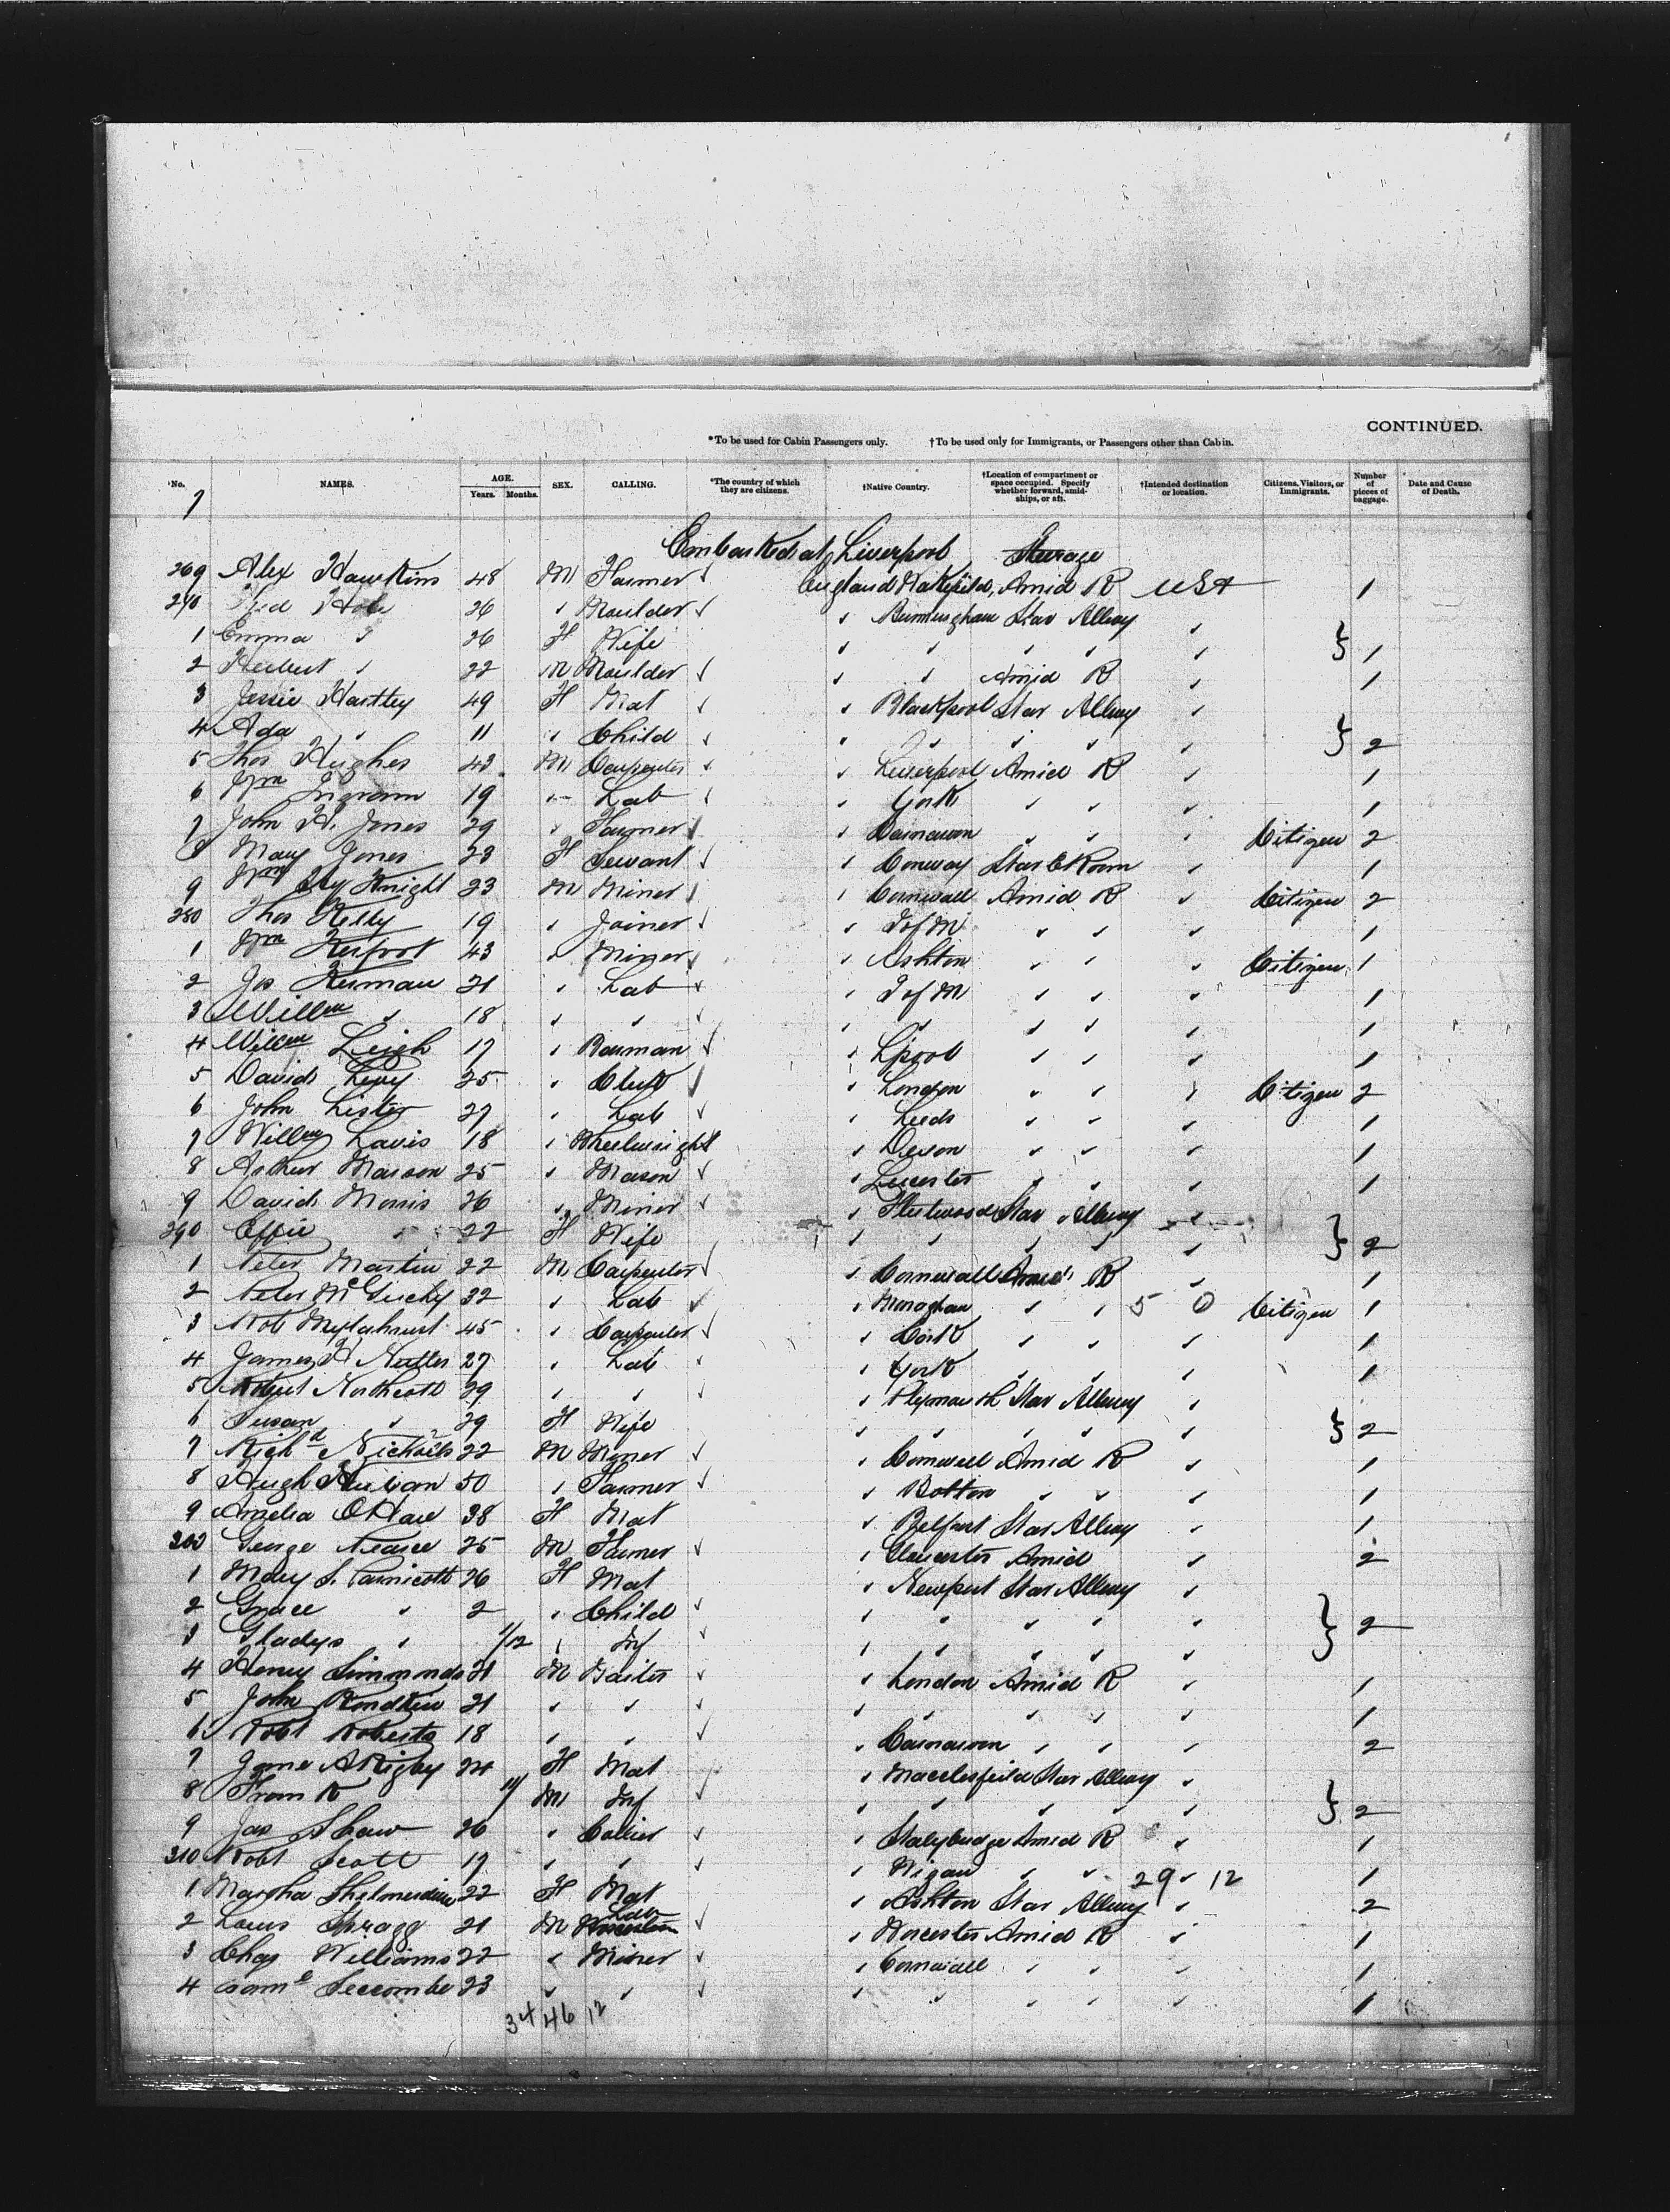 CONTINUED.
*To be used for Cabin Passengers only. †To be used only for Immigrants, or Passengers other than Cabin.
No. NAMES. AGE. Years. Months. SEX. CALLING. *The country of which they are citizens. †Native Country. †Location of compartment or space occupied. Specify whether forward, amidships, or aft. †Intended destination or location. Citizens, Visitors, or Immigrants. Number of pieces of baggage. Date and Cause of Death.
7
Embarked at Liverpool Steerage
269 Alex Hawkins 48 M Farmer England Wakefield Amid R USA 1
270 Fred 26 " Moulder " Birmingham Star Allway "
1 Emma " 26 F Wife " " " " " } 1
2 Herbert " 22 M Moulder " " Amid R " 1
3 Jessie Hartley 49 F Mat " Blackpool Star Allway "
4 Ada " 11 " Child " " " " " } 2
5 Thos Hughes 43 M Carpenter " Liverpool Amid R " 1
6 Wm Ingram 19 " Lab " York " " " 1
7 John H. Jones 29 " Farmer " Carnarvon " " " Citizen 2
8 Mary Jones 23 F Servant " Conway Star E Room " 1
9 Wm Hy Knight 23 M Miner " Cornwall Amid R " Citizen 2
280 Thos Kelly 19 " Joiner " I of M " " " 1
1 Wm Kerfoot 43 " Miner " Ashton " " " Citizen 1
2 Jos Kerman 21 " Lab " I of M " " " 1
3 Willm " 18 " " " " " " " 1
4 Willm Leigh 17 " " Lpool " " " 1
5 David Levy 25 " Clerk " London " " " Citizen 2
6 John Lister 27 " Lab " Leeds " " " 1
7 Willm Lavis 18 " Wheelwright " Devon " " " 1
8 Arthur Marson 25 " Mason " Leicester " " " 1
9 David Morris 26 " Miner " Fleetwood Star Allway "
290 Effie " 22 F Wife " " " " " } 2
1 Peter Martin 22 M Carpenter " Cornwall Amid R " 1
2 Peter 32 " Lab " Monaghan " " 5 0 Citizen 1
3 Rob 45 " Carpenter " Cork " " " 1
4 James H Nutter 27 " Lab " York " " " 1
5 Robert Northcott 29 " " " Plymouth Star Allway "
6 Susan " 29 F Wife " " " " " } 2
7 Richd Nicholls 22 M Miner " Cornwall Amid R " 1
8 Hugh 50 " Farmer " Bolton " " " 1
9 Amelia O'Hare 38 F Mat " Belfast Star Allway " 1
300 George Pearce 25 M Farmer " Gloucester Amid " 2
1 Mary S. Parnicott 26 F Mat " Newport Star Allway "
2 Grace " 2 " Child " " " " "
3 Gladys " /12 " Inf " " " " " } 2
4 Henry Simmonds 21 M " London Amid R " 1
5 John 21 " " " " " " " 1
6 Robt Roberts 18 " " " Carnarvon " " " 2
7 Jane A Rigby 24 F Mat " Macclesfield Star Allway "
8 Frank 11/ M Inf " " " " " } 2
9 Jas Shaw 26 " Collier " Stalybridge Amid R " 1
310 Robt Scott 17 " " " Wigan " " 29 " 12 1
1 Martha Shelmerdine 22 F Mat " Ashton Star Allway " 2
2 Louis Spragg 21 M Lab " Worcester Amid R " 1
3 Chas Williams 22 " Miner " Cornwall " " " 1
4 Saml Seccombe 23 " " " " " " " 1
34 46 12